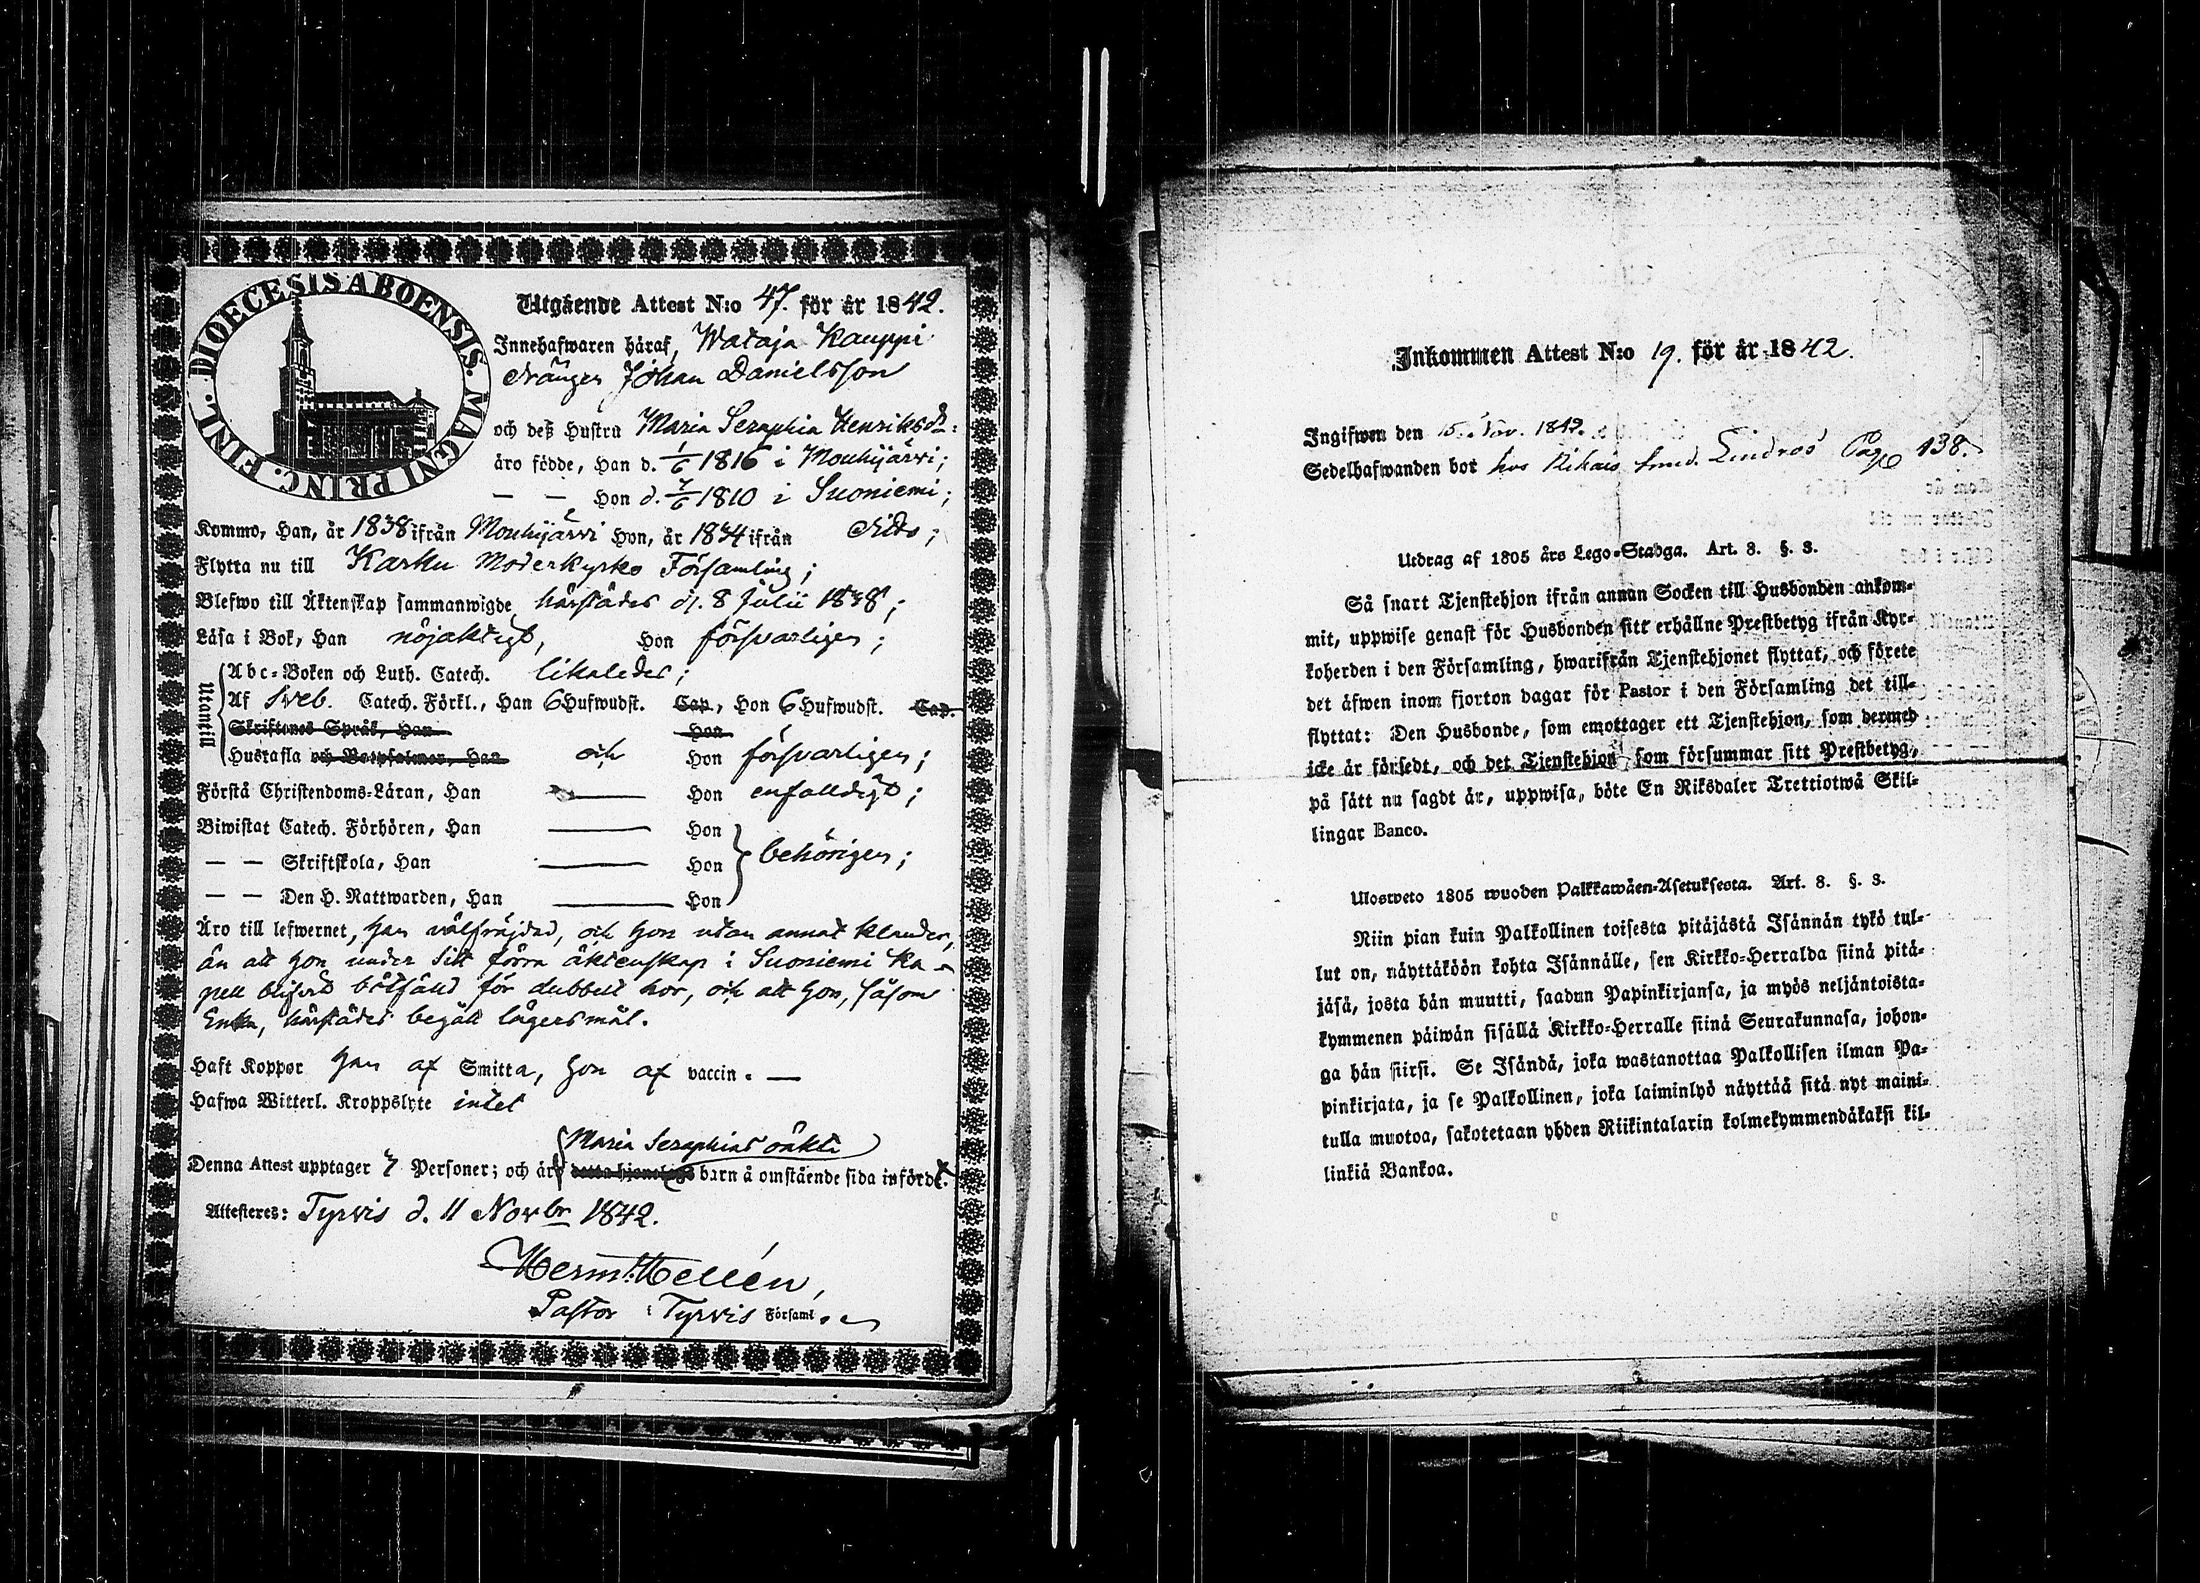 DIOECESIS ABOENSIS. MAGNI PRINC. FINL.
Utgående Attest N:o 47. för år 1842.
Innehafwaren häraf, Wataja Kauppi
drängen Johan Danielsson
och deß Hustru Maria Seraphia Henriksdr:
äro födde, Han d. 1/6 1816 i Mouhijärvi;
— — Hon d. 7/6 1810 i Suoniemi;
Kommo, Han, år 1838 ifrån Mouhijärvi Hon, år 1834 ifrån dito;
Flytta nu till Karku Moderkyrko Församling;
Blefwo till Äktenskap sammanwigde härstädes d. 8 Julii 1838;
Läsa i Bok, Han nöjaktigt, Hon försvarligen;
Utantill
Abc-Boken och Luth. Catech. likaledes;
Af Sveb. Catech. Förkl., Han 6 Hufwudst. Cap., Hon 6 Hufwudst. Cap.
Skriftenes Språk, Han Hon
Hustafla och Botpsalmer, Han och Hon försvarligen;
Förstå Christendoms-Läran, Han — Hon enfalldigt;
Biwistat Catech. Förhören, Han — Hon
— — Skriftskola, Han — Hon behörigen;
— — Den H. Nattwarden, Han — Hon
Äro till lefwernet, han välfräjdad, och hon utan annat klander,
än att hon under sitt förra äktenskap i Suoniemi Ka-
pell blifvit bötfälld för dubbelt hor, och att hon, såsom
Enka, härstädes begått lägersmål.
Haft Koppor Han af Smitta, hon af vaccin. —
Hafwa Witterl. Kroppslyte intet
Maria Seraphias oäkta
Denna Attest upptager 7 Personer; och äro detta hjonelags barn å omstående sida införde.
Attesteres: Tyrvis d. 11 Novbr 1842.
Herm. Hellén,
Pastor i Tyrvis Församl.
Inkommen Attest N:o 19. för år 1842.
Ingifwen den 15. Nov. 1842.
Sedelhafwanden bor hos Lindros Pag 138.
Utdrag af 1805 års Lego-Stadga. Art. 3. §. 3.
Så snart Tjenstehjon ifrån annan Socken till Husbonden ankom-
mit, uppwise genast för Husbonden sitt erhållne Prestbetyg ifrån Kyr-
koherden i den Församling, hwarifrån Tjenstehjonet flyttat, och förete
det äfwen inom fjorton dagar för Pastor i den Församling det till-
flyttat: Den Husbonde, som emottager ett Tjenstehjon, som dermed
icke är försedt, och det Tjenstehjon, som försummar sitt Prestbetyg,
på sätt nu sagdt är, uppwisa, böte En Riksdaler Trettiotwå Skil-
lingar Banco.
Ulosweto 1805 wuoden Palkkawäen-Asetuksesta. Art. 3. §. 3.
Niin pian kuin Palkollinen toisesta pitäjästä Isännän tykö tul-
lut on, näyttäköön kohta Isännälle, sen Kirkko-Herralda siinä pitä-
jäsä, josta hän muutti, saadun Papinkirjansa, ja myös neljäntoista-
kymmenen päiwän sisällä Kirkko-Herralle siinä Seurakunnasa, johon-
ga hän siirsi. Se Isändä, joka wastanottaa Palkollisen ilman Pa-
pinkirjata, ja se Palkollinen, joka laiminlyö näyttää sitä nyt maini-
tulla muotoa, sakotetaan yhden Riikintalarin kolmekymmendäkaksi kil-
linkiä Bankoa.